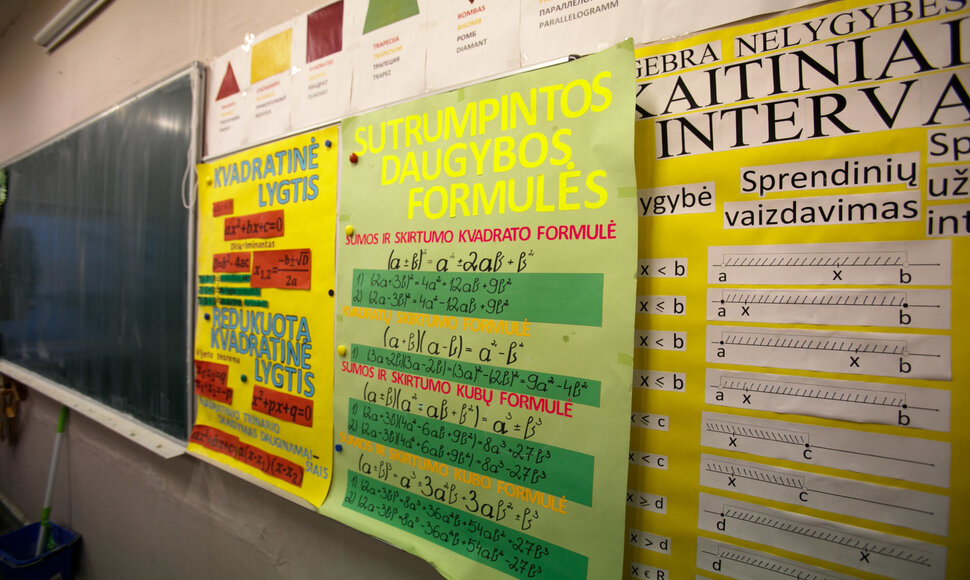 TRAPECIJA
ТРАПЕЦИЯ
TRAPEZ
KVADRATAS
КВАДРАТ
QUADRAT
ROMBAS
RHOMB
РОМБ
DIAMANT
ПАРАЛЛЕЛОГРАММ
PARALLELOGRAMM
KVADRATINĖ
LYGTIS
ax²+bx+c=0
Diskriminantas
D=b²-4ac
x₁,₂=(-b±√D)/2a
REDUKUOTA
KVADRATINĖ
LYGTIS
Vijeto teorema
x²+px+q=0
KVADRATINIO TRINARIO
SKAIDYMAS DAUGINAMAI-
SIAIS
ax²+bx+c=a(x-x₁)(x-x₂)
SUTRUMPINTOS
DAUGYBOS
FORMULĖS
SUMOS IR SKIRTUMO KVADRATO FORMULĖ
(a±b)²=a²±2ab+b²
1) (2a+3b)²=4a²+12ab+9b²
2) (2a-3b)²=4a²-12ab+9b²
KVADRATŲ SKIRTUMO FORMULĖ
(a+b)(a-b)=a²-b²
1) (3a-2b)(3a+2b)=(3a)²-(2b)²=9a²-4b²
SUMOS IR SKIRTUMO KUBŲ FORMULĖ
(a±b)(a²∓ab+b²)=a³±b³
1) (2a+3b)(4a²-6ab+9b²)=8a³+27b³
2) (2a-3b)(4a²+6ab+9b²)=8a³-27b³
SUMOS IR SKIRTUMO KUBO FORMULĖ
(a±b)³=a³±3a²b+3ab²±b³
1) (2a+3b)³=8a³+36a²b+54ab²+27b³
2) (2a-3b)³=8a³-36a²b+54ab²-27b³
GEBRA NELYGYBĖS
KAITINIAI
INTERVA
ygybė
Sprendinių
vaizdavimas
Sp
už
int
x < b
a x b
x ≤ b
a x b
x < b
a x b
x ≤ b
a x b
x ≤ c
x c
x < c
x c
x ≥ d
d x
x > d
d x
x ∈ R